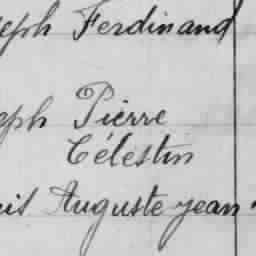 eph Ferdinand
eph Pierre
Célestin
uis Auguste jean